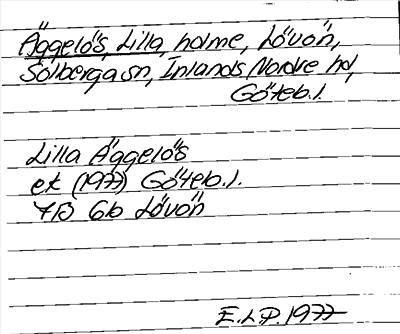 Äggelös, Lilla, holme, Lövön,
Solberga sn, Inlands Nordre hd,
Göteb.l.
Lilla Äggelös
ek (1977) Göteb.l.
7B 6b Lövön
E.L.P. 1977